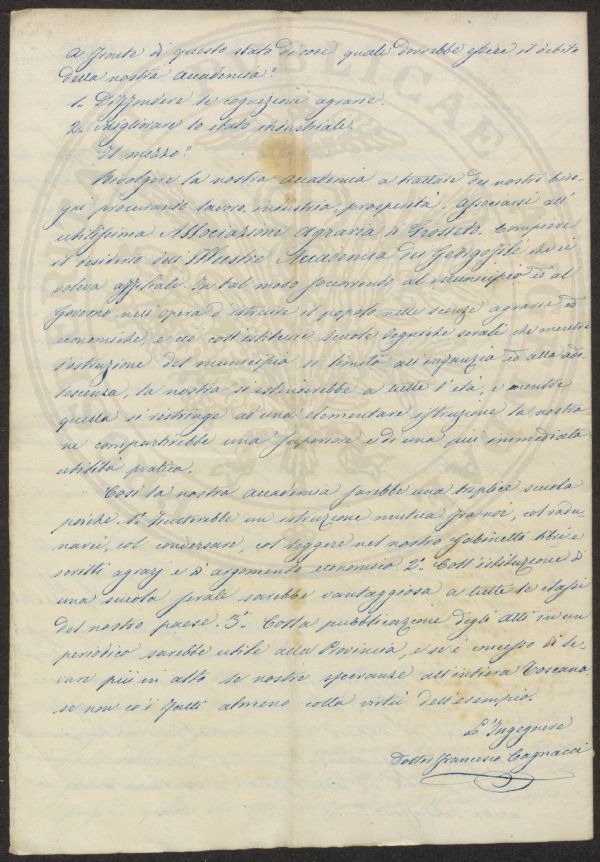 A fronte di questo stato di cose quale dovrebbe essere il debito
della nostra Accademia?
1. Diffondere le cognizioni agrarie.
2. Migliorare lo stato industriale.
Il mezzo?
Rivolgere la nostra Accademia a trattare dei nostri biso
gni procurando lavoro, industria, prosperità. Associarsi all'
utilissima Associazione Agraria di Grosseto. Compiere
il desiderio dell'Illustre Accademia dei Georgofili che ci
voleva affiliati. In tal modo soccorrendo al Municipio ed al
Governo nell'opera d'istruire il popolo nelle scienze agrarie ed
economiche, e ciò coll'istituire scuole serali che mentre
l'istruzione del municipio si limita all'infanzia ed alla ado
lescenza, la nostra si estenderebbe a tutte l'età, e mentre
quella si restringe ad una elementare istruzione la nostra
ne compartirebbe una superiore e di una più immediata
utilità pratica.
Così la nostra Accademia sarebbe una triplice scuola
poichè 1.° un istruzione mutua fra noi, col radu
narci, col conversare, col leggere nel nostro Gabinetto libri e
scritti agrarj e di argomento economico. 2.° Coll'istituzione di
una scuola serale sarebbe vantaggiosa a tutte le classi
del nostro paese. 3.° Colla pubblicazione degli atti in un
periodico sarebbe utile alla Provincia, e se è concesso di le
vare più in alto le nostre speranze all'intiera Toscana,
se non co'i fatti almeno colla virtù dell'esempio.
L'Ingegnere
Dottor Francesco Cagnacci